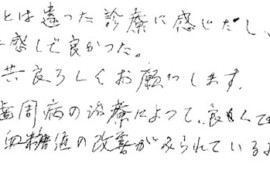 とは違った診療に感じたし、
感じて良かった。
共良ろしくお願いします。
歯周病の治療によって、良くて
血糖値の改善がみられているよ